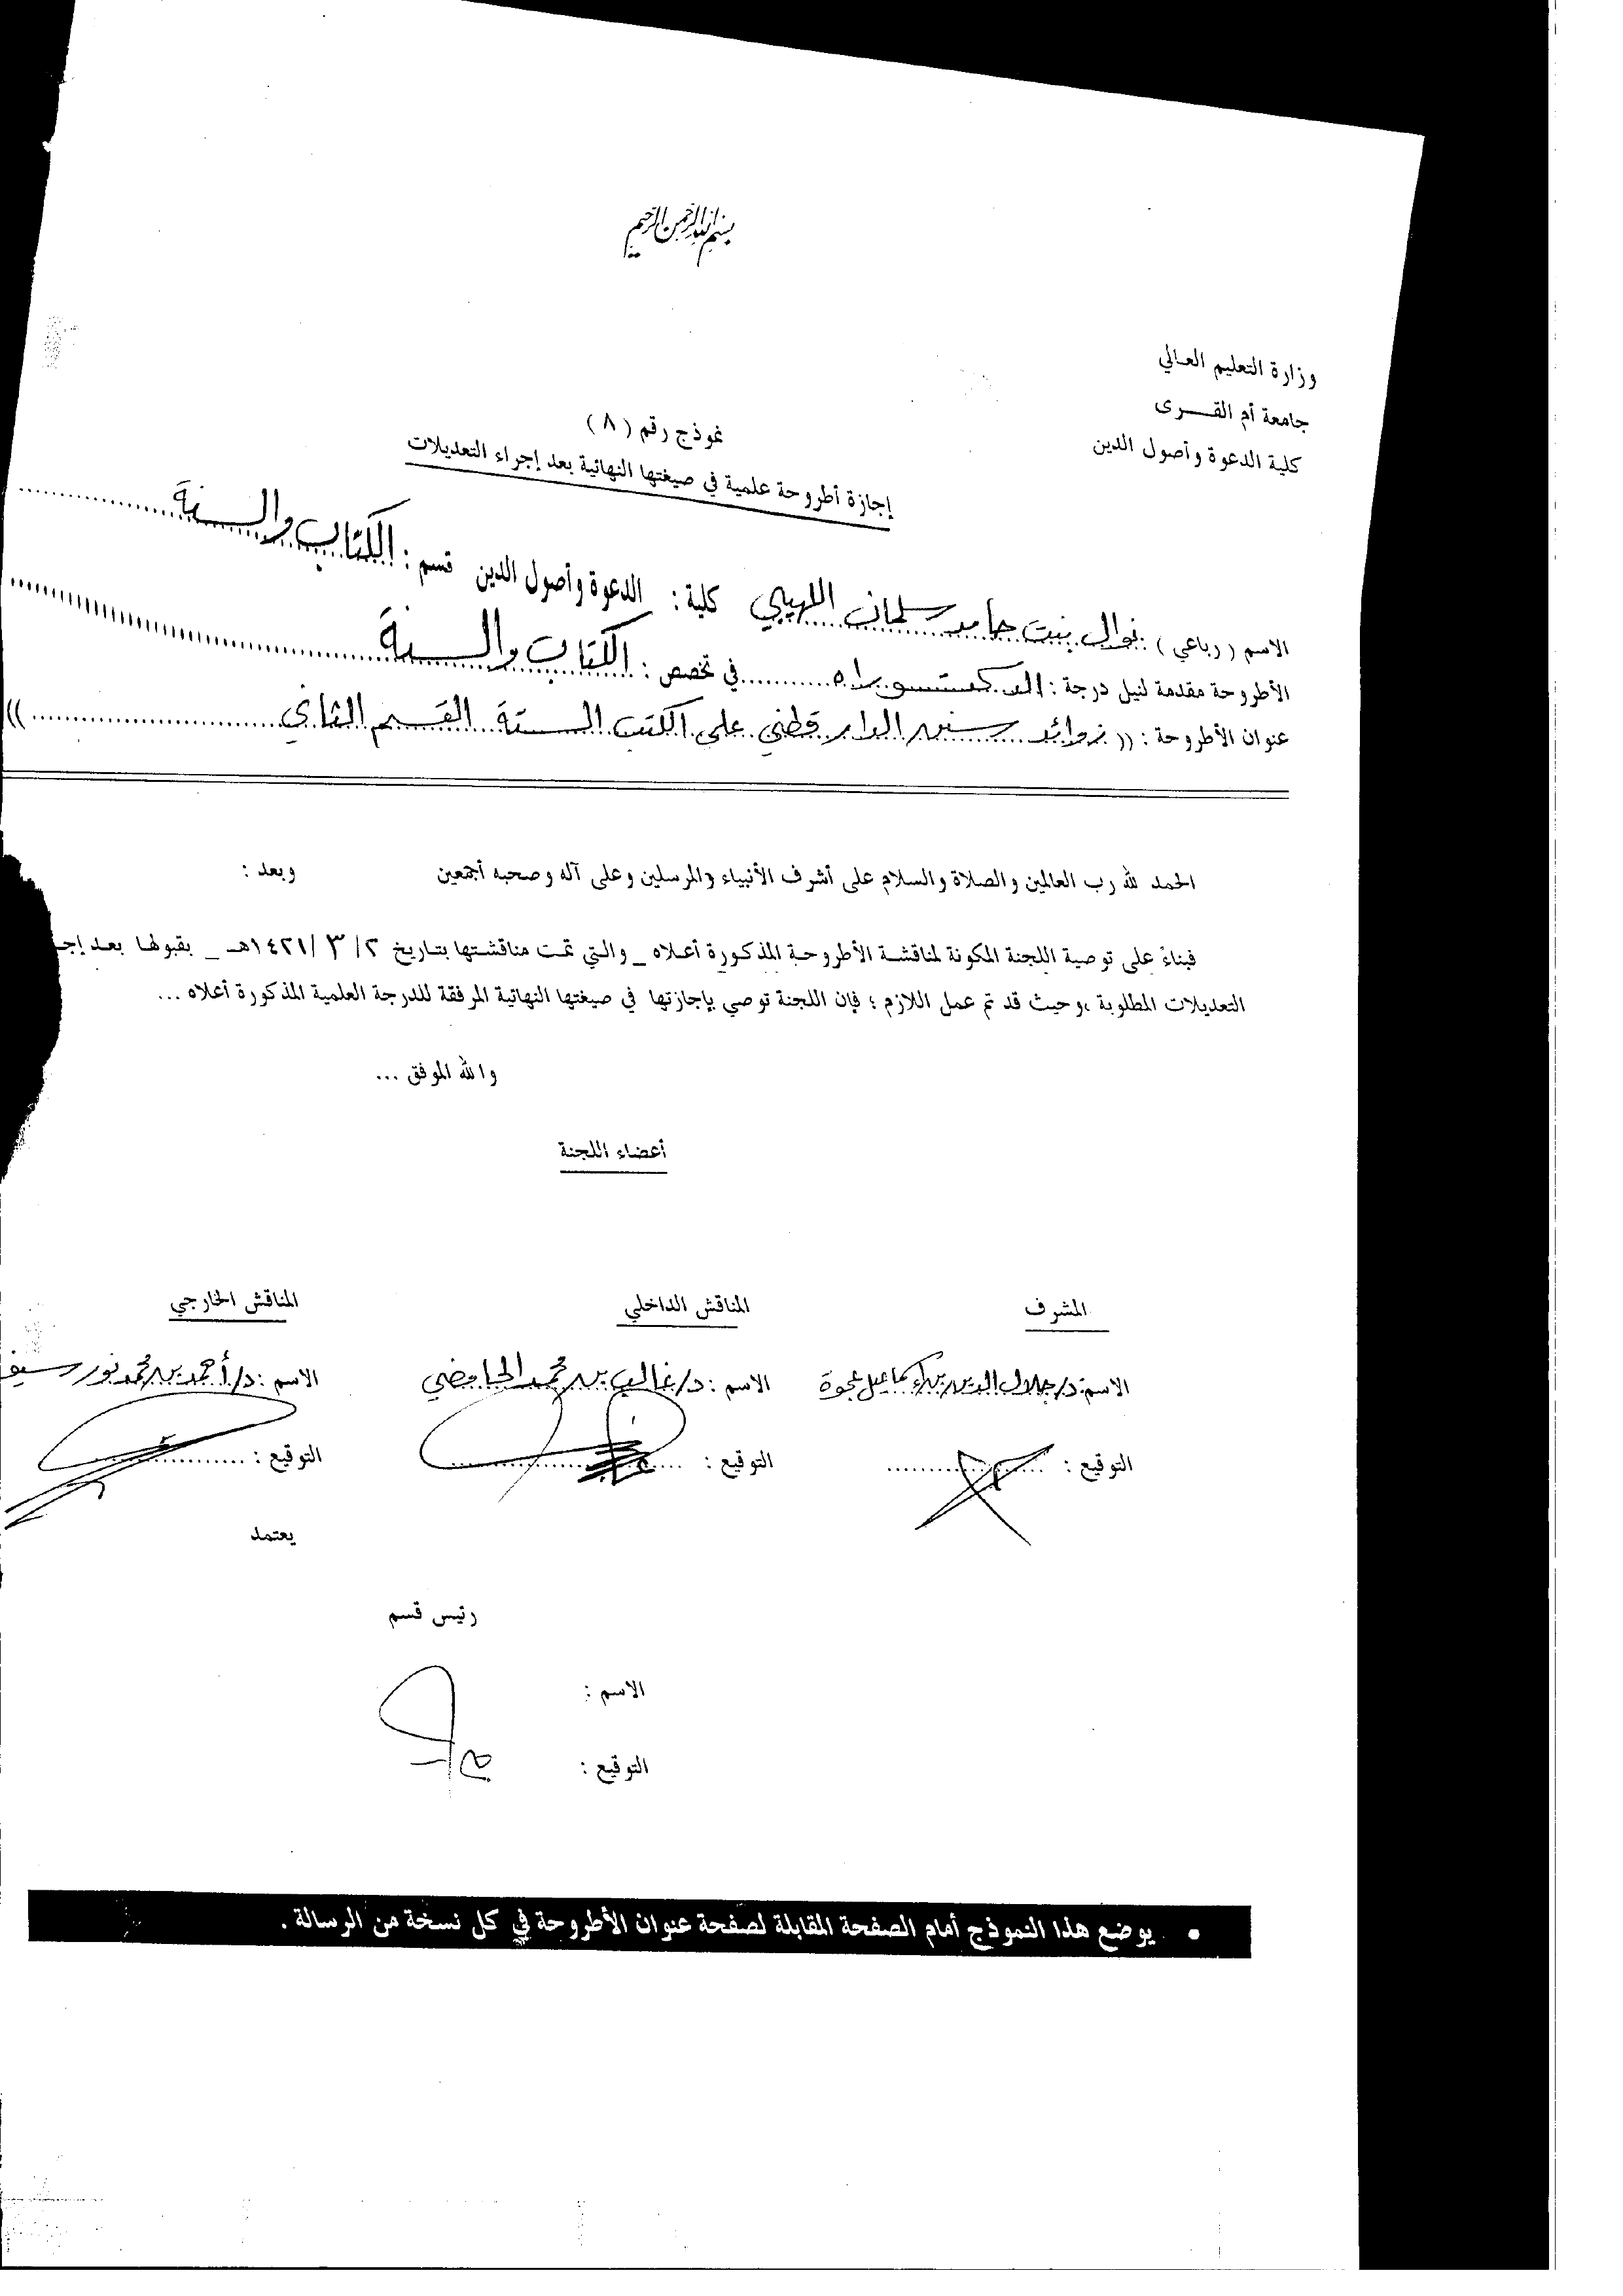 بسم الله الرحمن الرحيم
وزارة التعليم العالي
جامعة أم القـــرى
كلية الدعوة وأصول الدين
نموذج رقم ( ٨ )
إجازة أطروحة علمية في صيغتها النهائية بعد إجراء التعديلات
الاسم ( رباعي ) : نوال بنت حامد سلمان اللهيبي كلية : الدعوة وأصول الدين قسم : الكتاب والسنة
الأطروحة مقدمة لنيل درجة : الدكتوراه في تخصص : الكتاب والسنة
عنوان الأطروحة : (( زوائد سنن الدارقطني على الكتب الستة القسم الثاني ))
الحمد لله رب العالمين والصلاة والسلام على أشرف الأنبياء والمرسلين وعلى آله وصحبه أجمعين وبعد :
فبناءً على توصية اللجنة المكونة لمناقشة الأطروحة المذكورة أعلاه _ والتي تمت مناقشتها بتاريخ ٢/ ٣ /١٤٢١هـ _ بقبولها بعد إجـ
التعديلات المطلوبة ،وحيث قد تم عمل اللازم ؛ فإن اللجنة توصي بإجازتها في صيغتها النهائية المرفقة للدرجة العلمية المذكورة أعلاه ...
والله الموفق ...
أعضاء اللجنة
المشرف المناقش الداخلي المناقش الخارجي
الاسم: د/ جلال الدين بن إسماعيل عجوة الاسم : د/ غالب بن محمد الحامضي الاسم : د/ أحمد بن محمد نور سيف
التوقيع : التوقيع : التوقيع :
يعتمد
رئيس قسم
الاسم :
التوقيع :
• يوضع هذا النموذج أمام الصفحة المقابلة لصفحة عنوان الأطروحة في كل نسخة من الرسالة .